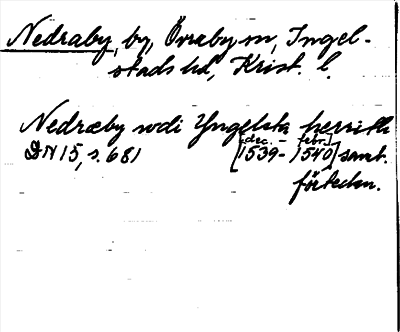 Nedraby, by, Öraby sn, Ingel-
stads hd, Krist. l.
Nedræby wdi Yngelsta herrith
[dec. - febr.]
DN 15, s. 681 [1539-1540] samt.
förteckn.